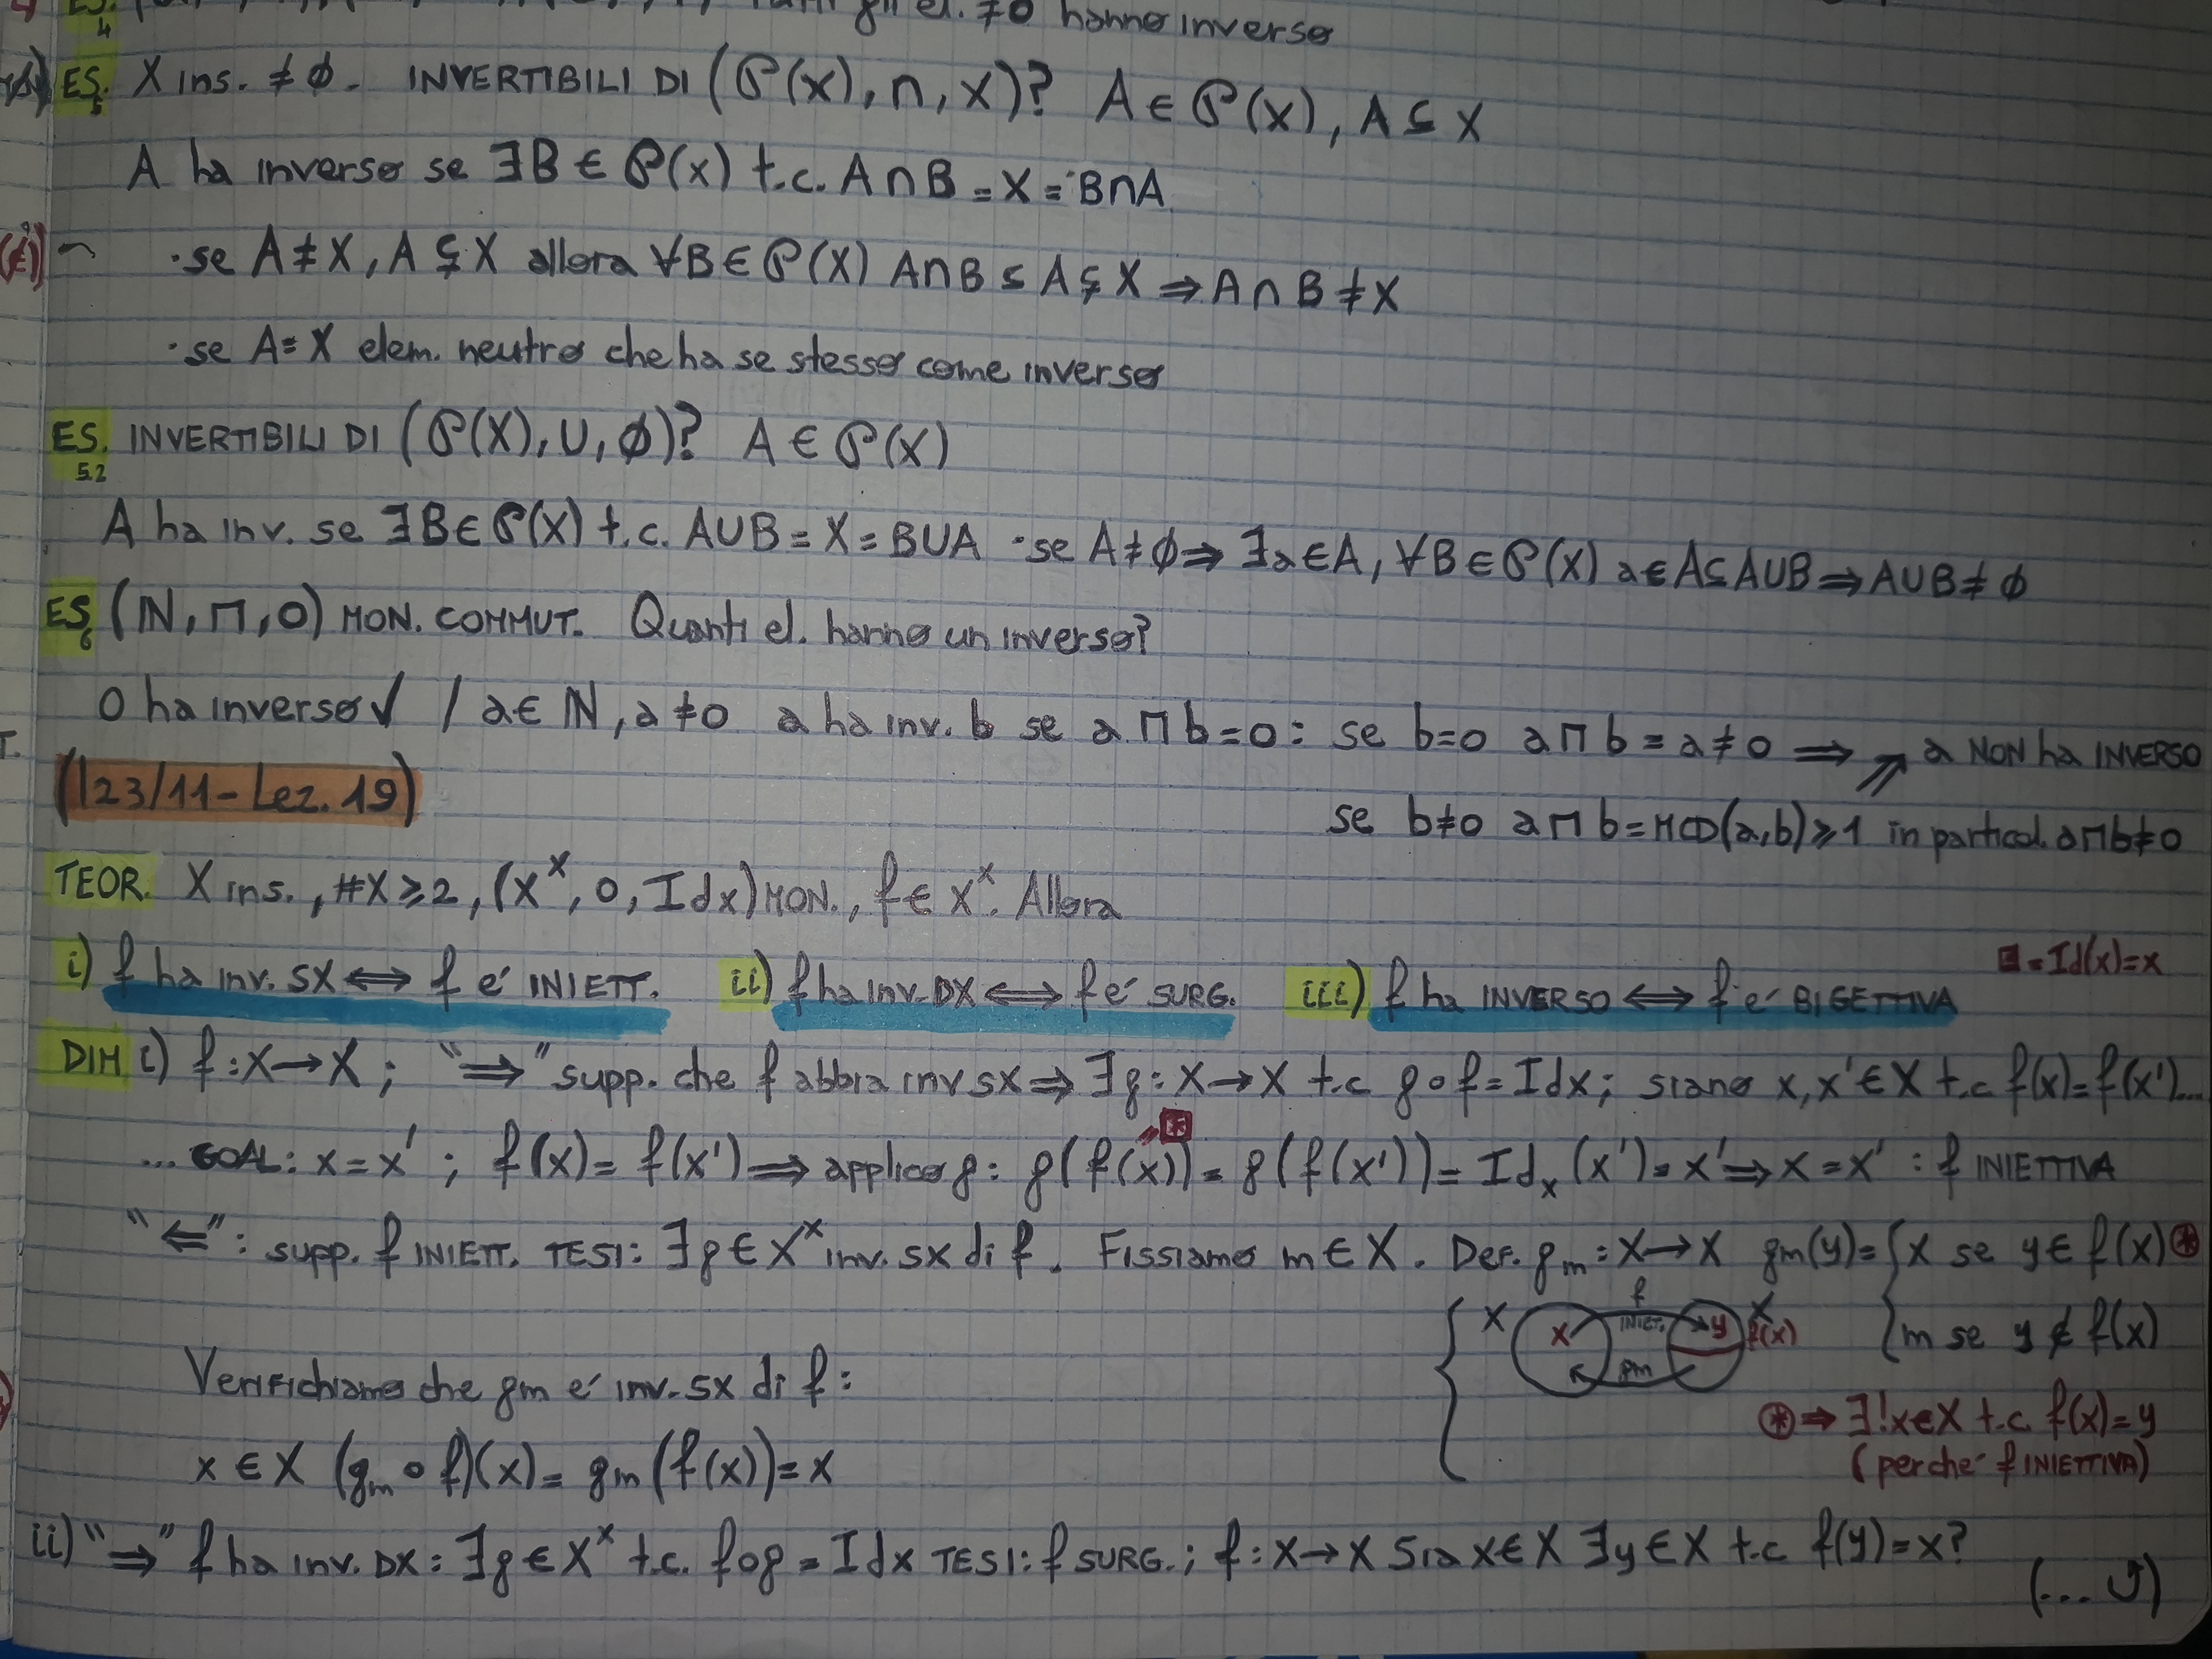 el. ≠0 hanno inverso
ES. 5 X ins. ≠ ∅. INVERTIBILI DI (P(X), ∩, X)? A ∈ P(X), A ⊆ X
A ha inverso se ∃B ∈ P(X) t.c. A∩B = X = B∩A
· se A ≠ X, A ⊊ X allora ∀B ∈ P(X) A∩B ⊆ A ⊊ X ⇒ A∩B ≠ X
· se A = X elem. neutro che ha se stesso come inverso
ES. 5.2 INVERTIBILI DI (P(X), ∪, ∅)? A ∈ P(X)
A ha inv. se ∃B∈P(X) t.c. A∪B = X = B∪A · se A≠∅ ⇒ ∃a∈A, ∀B∈P(X) a∈A⊆A∪B ⇒ A∪B ≠ ∅
ES. 6 (ℕ, ⊓, 0) MON. COMMUT. Quanti el. hanno un inverso?
0 ha inverso ✓ / a∈ℕ, a≠0 a ha inv. b se a⊓b=0: se b=0 a⊓b = a≠0 ⇒ a NON ha INVERSO
(123/11 - Lez. 19)
se b≠0 a⊓b = MCD(a,b) ⩾ 1 in particol. a⊓b≠0 ⇗
TEOR. X ins., #X ⩾ 2, (X^X, o, Idx) MON., f ∈ X^X. Allora
i) f ha inv. SX ⟺ f é INIETT. ii) f ha inv. DX ⟺ f é SURG. iii) f ha INVERSO ⟺ f é BIGETTIVA
⊡ = Id(x)=x
DIM i) f: X→X; "⇒" supp. che f abbia inv SX ⇒ ∃g: X→X t.c g∘f = Idx; siano x, x' ∈ X t.c f(x)=f(x')...
... GOAL: x = x' ; f(x) = f(x') ⇒ applico g: g(f(x)) =⊡ g(f(x')) = Id_x (x') = x' ⇒ x = x' : f INIETTIVA
"⇐": supp. f INIETT. TESI: ∃g ∈ X^X inv. SX di f. Fissiamo m ∈ X. Def. g_m: X→X gm(y) = { x se y ∈ f(x) ⊛
m se y ∉ f(x)
X x f INIET. gm y X f(x)
Verifichiamo che gm é inv. SX di f:
⊛ ⇒ ∃!x∈X t.c. f(x)=y
(perché f INIETTIVA)
x ∈ X (g_m ∘ f)(x) = gm (f(x)) = x
ii) "⇒" f ha inv. DX: ∃g ∈ X^X t.c. f∘g = Idx TESI: f SURG.; f: X→X Sia x∈X ∃y∈X t.c f(y)=x?
(... ↺)